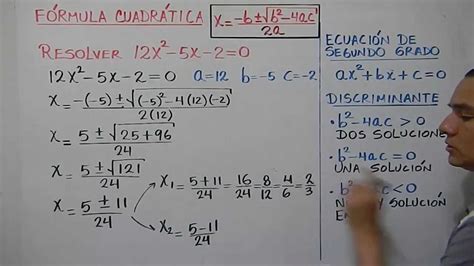 FÓRMULA CUADRÁTICA x = -b ± √b² - 4ac / 2a
RESOLVER 12x² - 5x - 2 = 0
12x² - 5x - 2 = 0 a = 12 b = -5 c = -2
x = -(-5) ± √(-5)² - 4(12)(-2) / 2(12)
x = 5 ± √25 + 96 / 24
x = 5 ± √121 / 24
x = 5 ± 11 / 24
x₁ = 5 + 11 / 24 = 16/24 = 8/12 = 4/6 = 2/3
x₂ = 5 - 11 / 24
ECUACIÓN DE
SEGUNDO GRADO
ax² + bx + c = 0
DISCRIMINANTE
• b² - 4ac > 0
DOS SOLUCIONE
• b² - 4ac = 0
UNA SOLUCIÓN
• b² c < 0
SOLUCIÓN